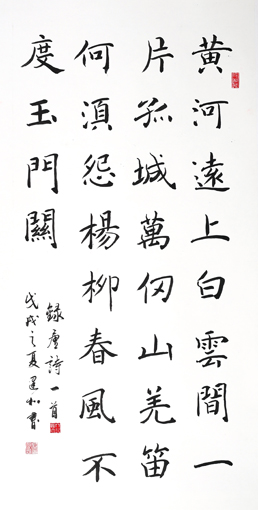 黄河遠上白雲間一
片孤城萬仞山羌笛
何須怨楊柳春風不
度玉門關
録唐詩一首
戊戌之夏 和書